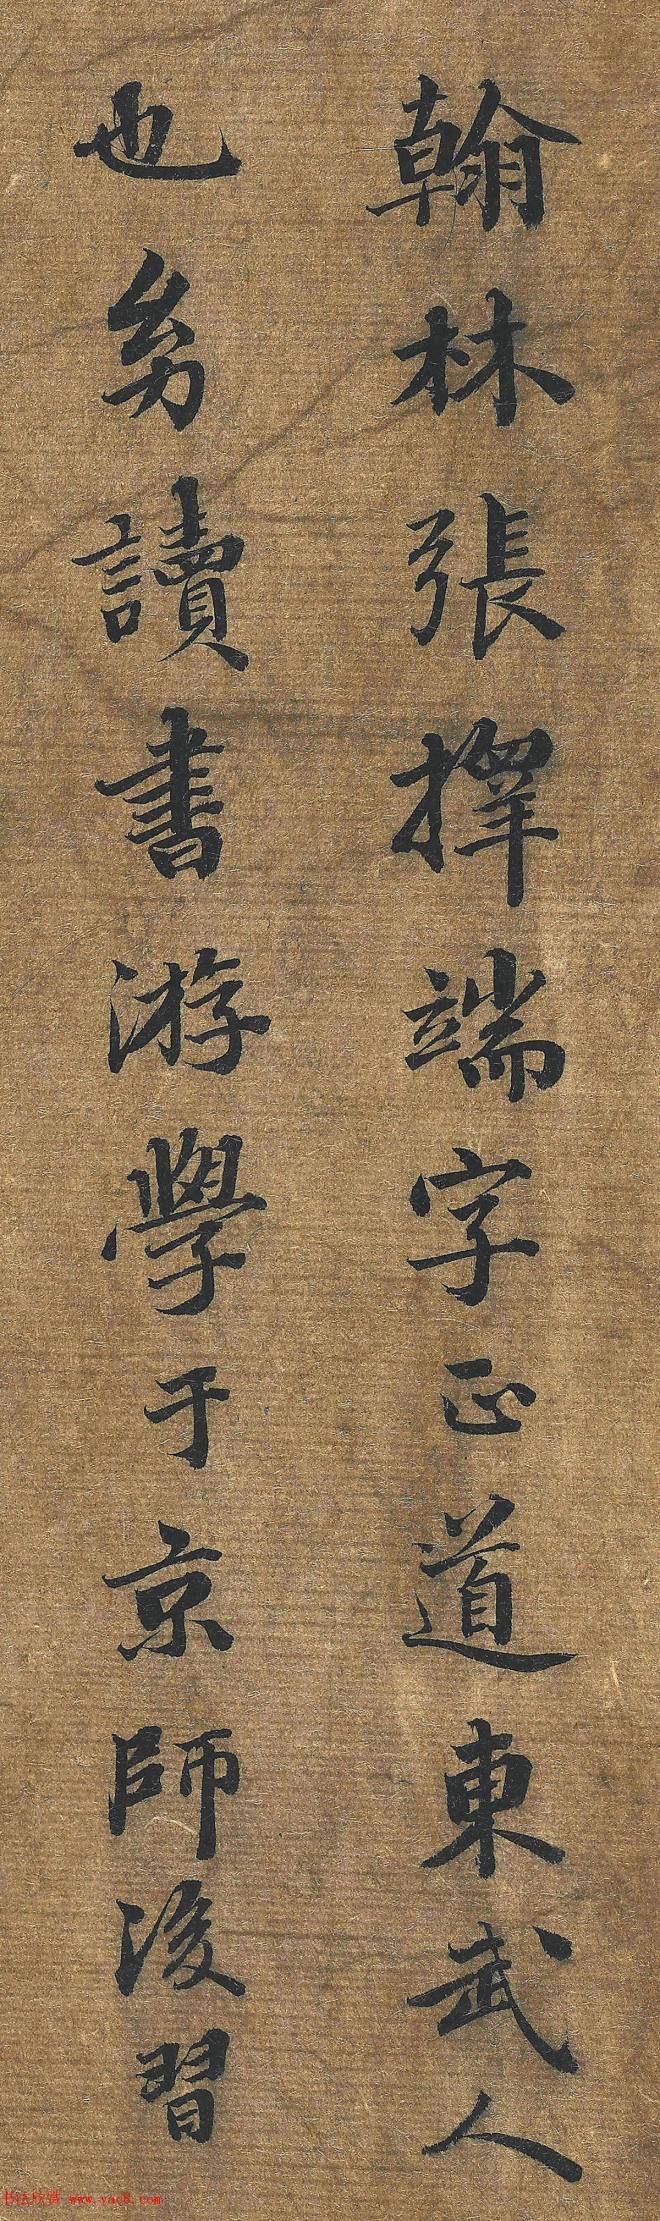 翰林張擇端字正道東武人
也㓜讀書游學于京師後習
书法欣赏 www.yac8.com